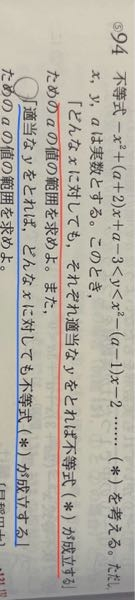 ⑤94 不等式 −x²+(a+2)x+a−3<y<x²−(a−1)x−2 ……(*) を考える。ただし，
x, y, a は実数とする。このとき，
「どんな x に対しても，それぞれ適当な y をとれば不等式 (*) が成立する」
ための a の値の範囲を求めよ。また，
「適当な y をとれば，どんな x に対しても不等式 (*) が成立する」
ための a の値の範囲を求めよ。